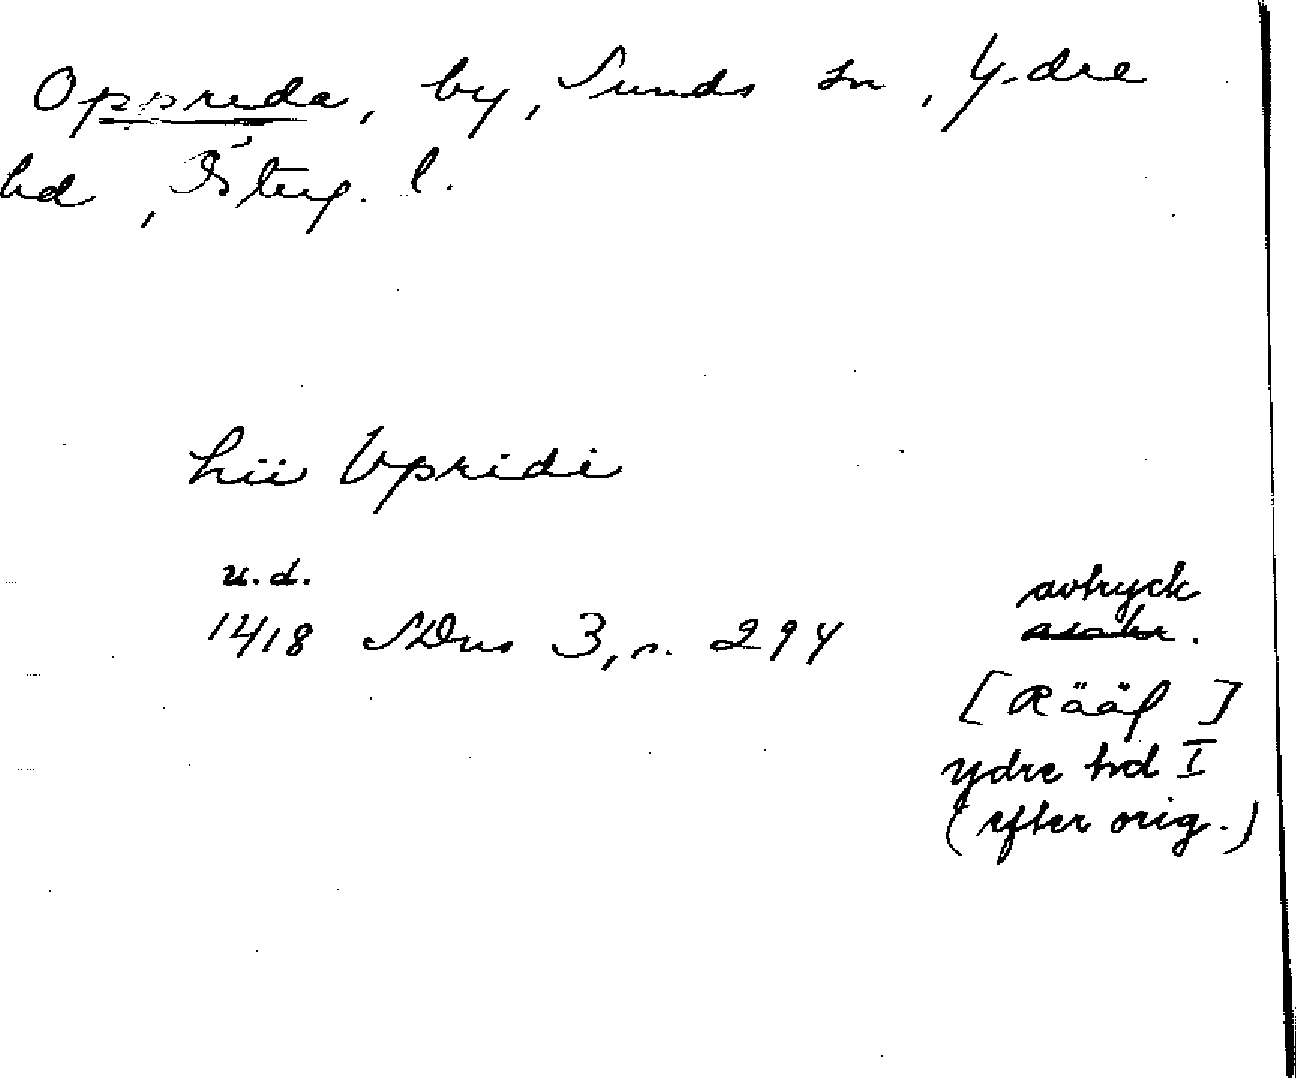 Oppreda, by, Sunds sn, Ydre
hd, Österg. l.
hii Vpridi
u.d.
1418 SDns 3, s. 294
avtryck
[Rääf]
Ydre hd I
(efter orig.)